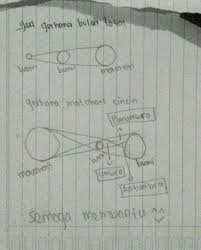 gerhana bulan total
bumi matahari
gerhana matahari cincin
Panumbra
matahari bumi
Umbra
Antumbra
Semoga membantu ^^